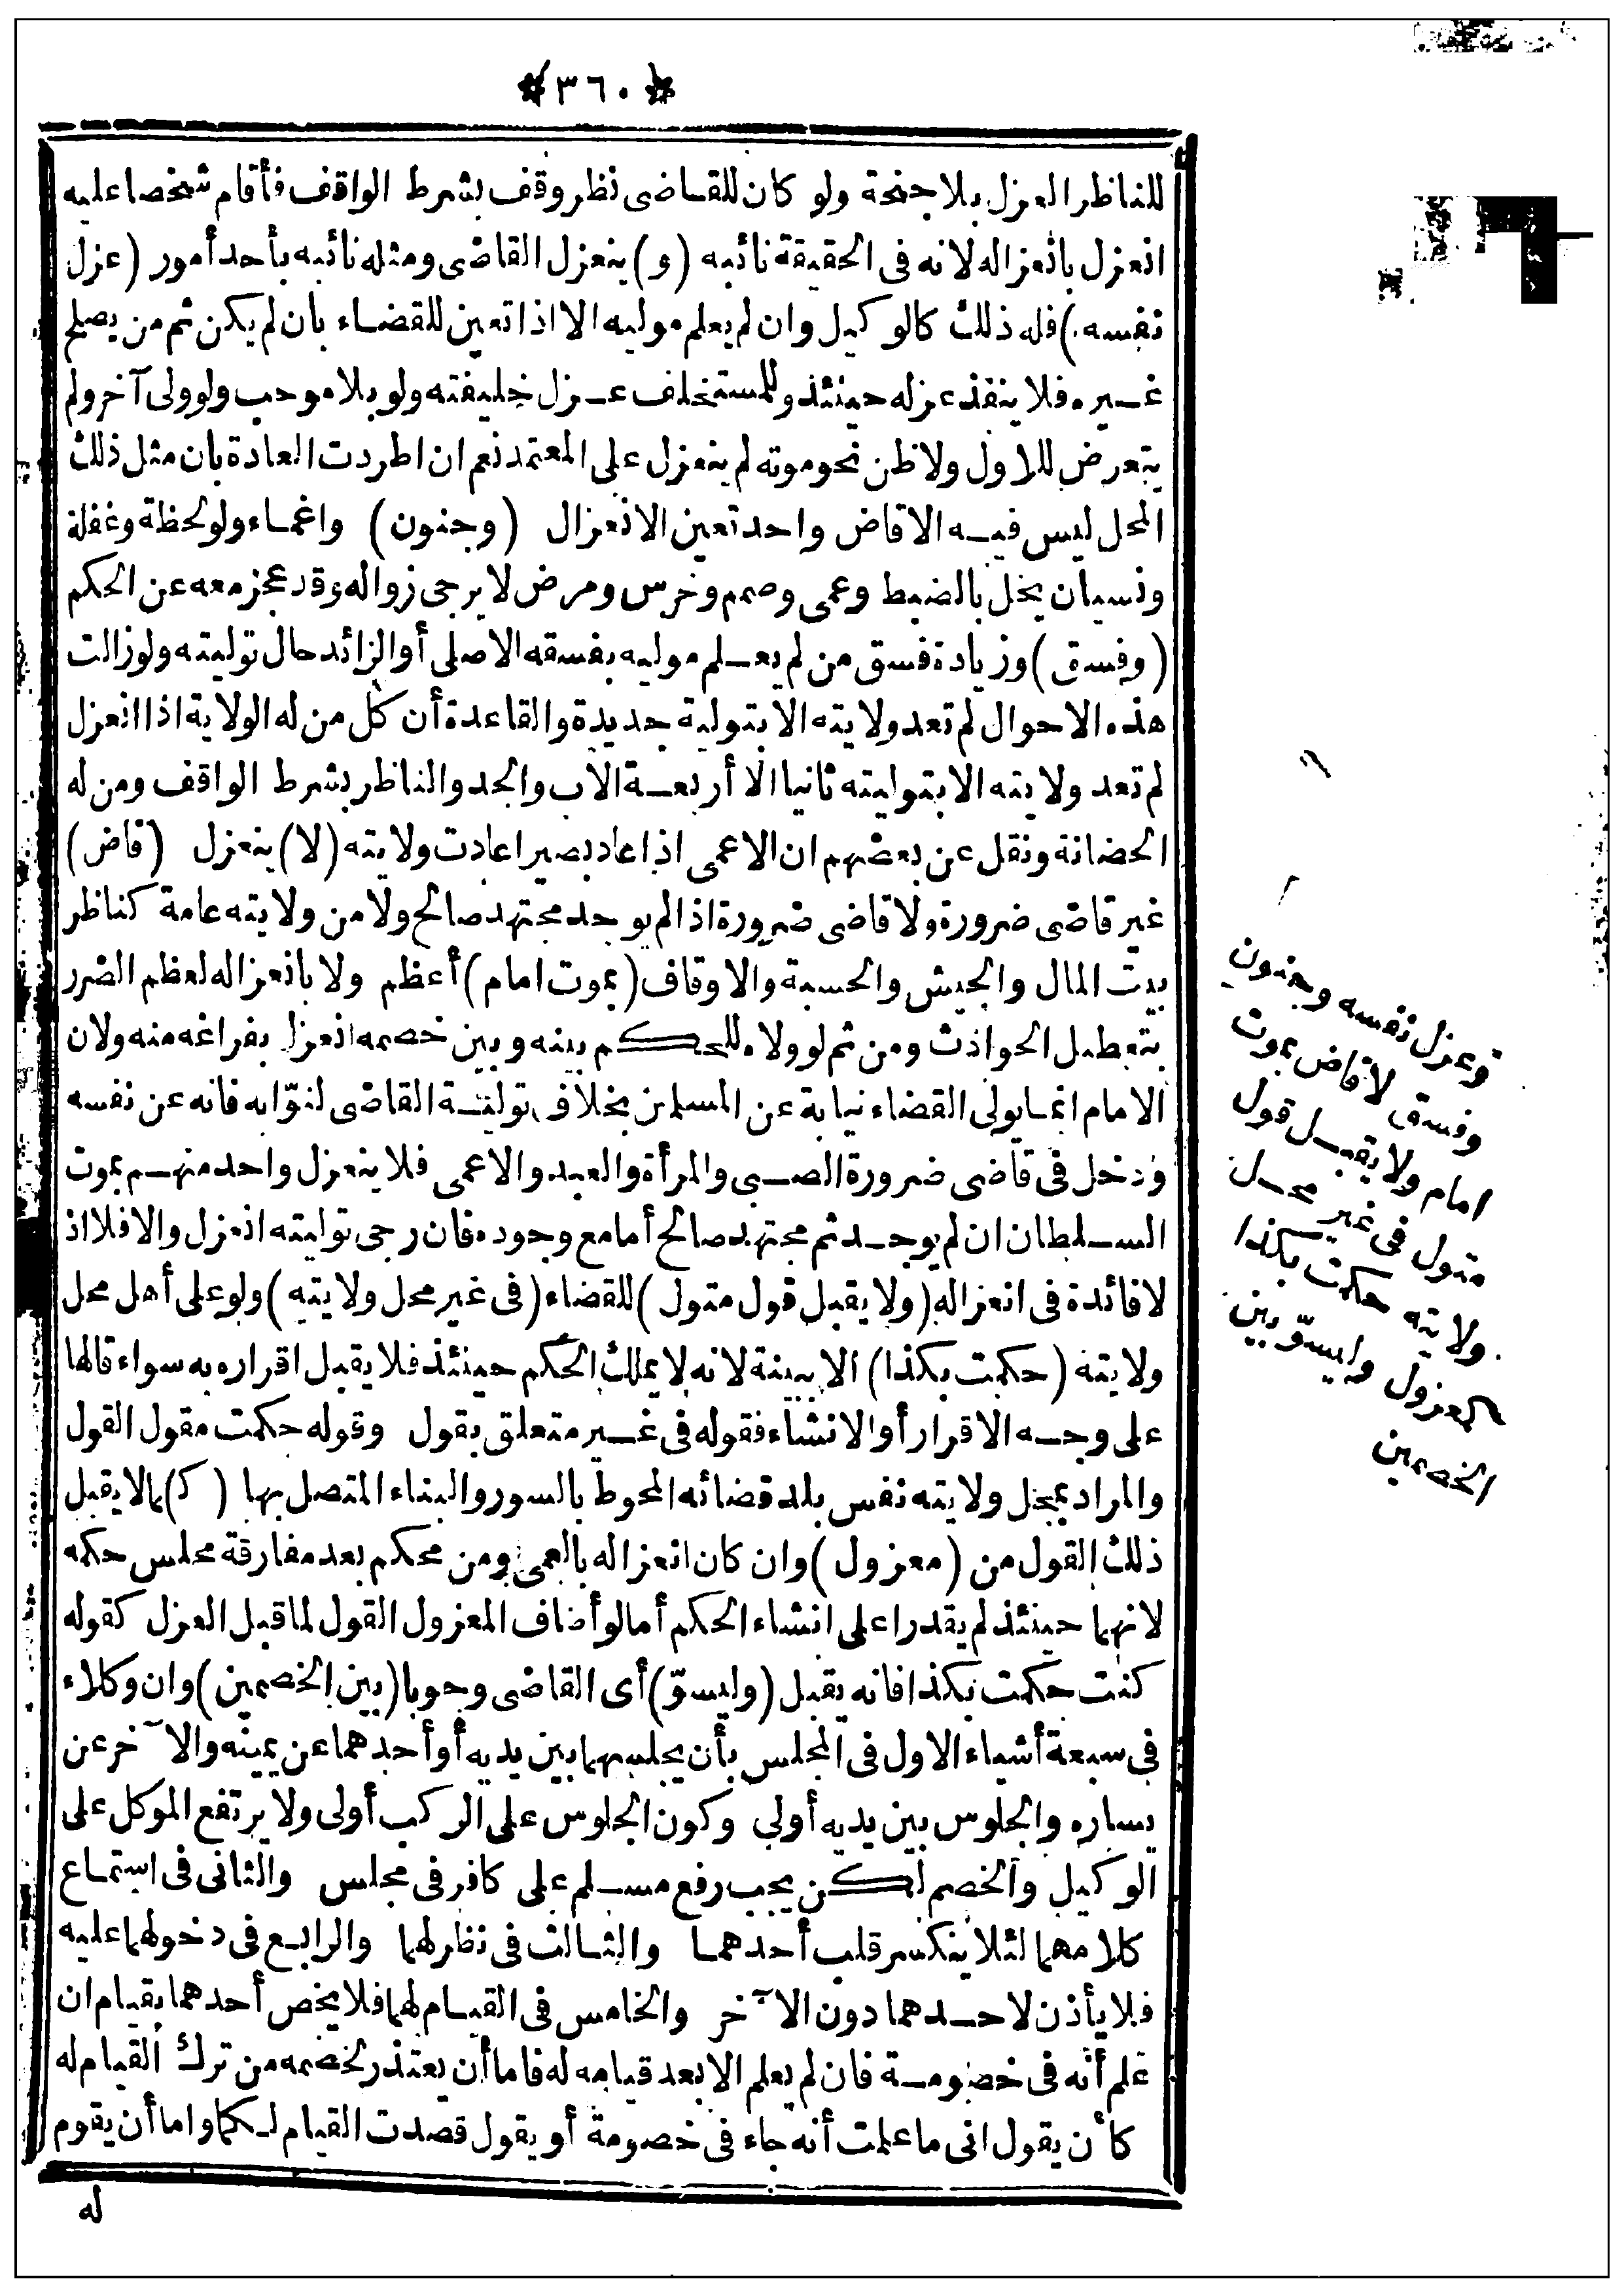 ٣٦٠
للناظر العزل بلا جنحة ولو كان للقاضى نظر وقف بشرط الواقف فأقام شخصا عليه
انعزل بانعزاله لانه فى الحقيقة نائبه (و) ينعزل القاضى ومثله نائبه بأحد أمور (عزل
نفسه) فله ذلك كالوكيل وان لم يعلم موليه الا اذا تعين للقضاء بأن لم يكن ثم من يصلح
غيره فلا ينفذ عزله حينئذ وللمستخلف عزل خليفته ولو بلا موجب ولو ولى آخر ولم
يتعرض للاول ولا ظن نحو موته لم ينعزل على المعتمد نعم ان اطردت العادة بان مثل ذلك
المحل ليس فيه الا قاض واحد تعين الانعزال (وجنون) واغماء ولو لحظة وغفلة
ونسيان يخل بالضبط وعمى وصمم وخرس ومرض لا يرجى زواله وقد عجز معه عن الحكم
(وفسق) وزيادة فسق من لم يعلم موليه بفسقه الاصلى أو الزائد حال توليته ولو زالت
هذه الاحوال لم تعد ولايته الا بتولية جديدة والقاعدة أن كل من له الولاية اذا انعزل
لم تعد ولايته الا بتوليته ثانيا الا أربعة الأب والجد والناظر بشرط الواقف ومن له
الحضانة ونقل عن بعضهم ان الاعمى اذا عاد بصيرا عادت ولايته (لا) ينعزل (قاض)
غير قاضى ضرورة ولا قاضى ضرورة اذا لم يوجد مجتهد صالح ولا من ولايته عامة كناظر
بيت المال والجيش والحسبة والاوقاف (بموت امام) أعظم ولا بانعزاله لعظم الضرر
بتعطيل الحوادث ومن ثم لو ولاه للحكم بينه وبين خصمه انعزل بفراغه منه ولان
الامام انما يولى القضاء نيابة عن المسلمين بخلاف تولية القاضى لنوّابه فانه عن نفسه
ودخل فى قاضى ضرورة الصبى والمرأة والعبد والاعمى فلا ينعزل واحد منهم بموت
السلطان ان لم يوجد ثم مجتهد صالح أما مع وجوده فان رجى توليته انعزل والا فلا اذ
لا فائدة فى انعزاله (ولا يقبل قول متول) للقضاء (فى غير محل ولايته) ولو على أهل محل
ولايته (حكمت بكذا) الا ببينة لانه لا يملك الحكم حينئذ فلا يقبل اقراره به سواء قالها
على وجه الاقرار أو الانشاء فقوله فى غير متعلق بقول وقوله حكمت مقول القول
والمراد بمحل ولايته نفس بلد قضائه المحوط بالسور والبناء المتصل بها (ك)ما لا يقبل
ذلك القول من (معزول) وان كان انعزاله بالعمى ومن محكم بعد مفارقة مجلس حكمه
لانهما حينئذ لم يقدرا على انشاء الحكم أما لو أضاف المعزول القول لما قبل العزل كقوله
كنت حكمت بكذا فانه يقبل (وليسوّ) أى القاضى وجوبا (بين الخصمين) وان وكلاء
فى سبعة أشياء الاول فى المجلس بأن يجلسهما بين يديه أو أحدهما عن يمينه والآخر عن
يساره والجلوس بين يديه أولى وكون الجلوس على الركب أولى ولا يرتفع الموكل على
الوكيل والخصم لكن يجب رفع مسلم على كافر فى مجلس والثانى فى استماع
كلامهما لئلا ينكسر قلب أحدهما والثالث فى نظر لهما والرابع فى دخولهما عليه
فلا يأذن لاحدهما دون الآخر والخامس فى القيام لهما فلا يخص أحدهما بقيام ان
علم أنه فى خصومة فان لم يعلم الا بعد قيامه له فاما أن يعتذر لخصمه من ترك القيام له
كأن يقول انى ما علمت أنه جاء فى خصومة أو يقول قصدت القيام لكما واما أن يقوم
له
وعزل نفسه وجنون
وفسق لا قاض بموت
امام ولا يقبل قول
متول فى غير محل
ولايته حكمت بكذا
كمعزول وليسوّ بين
الخصمين